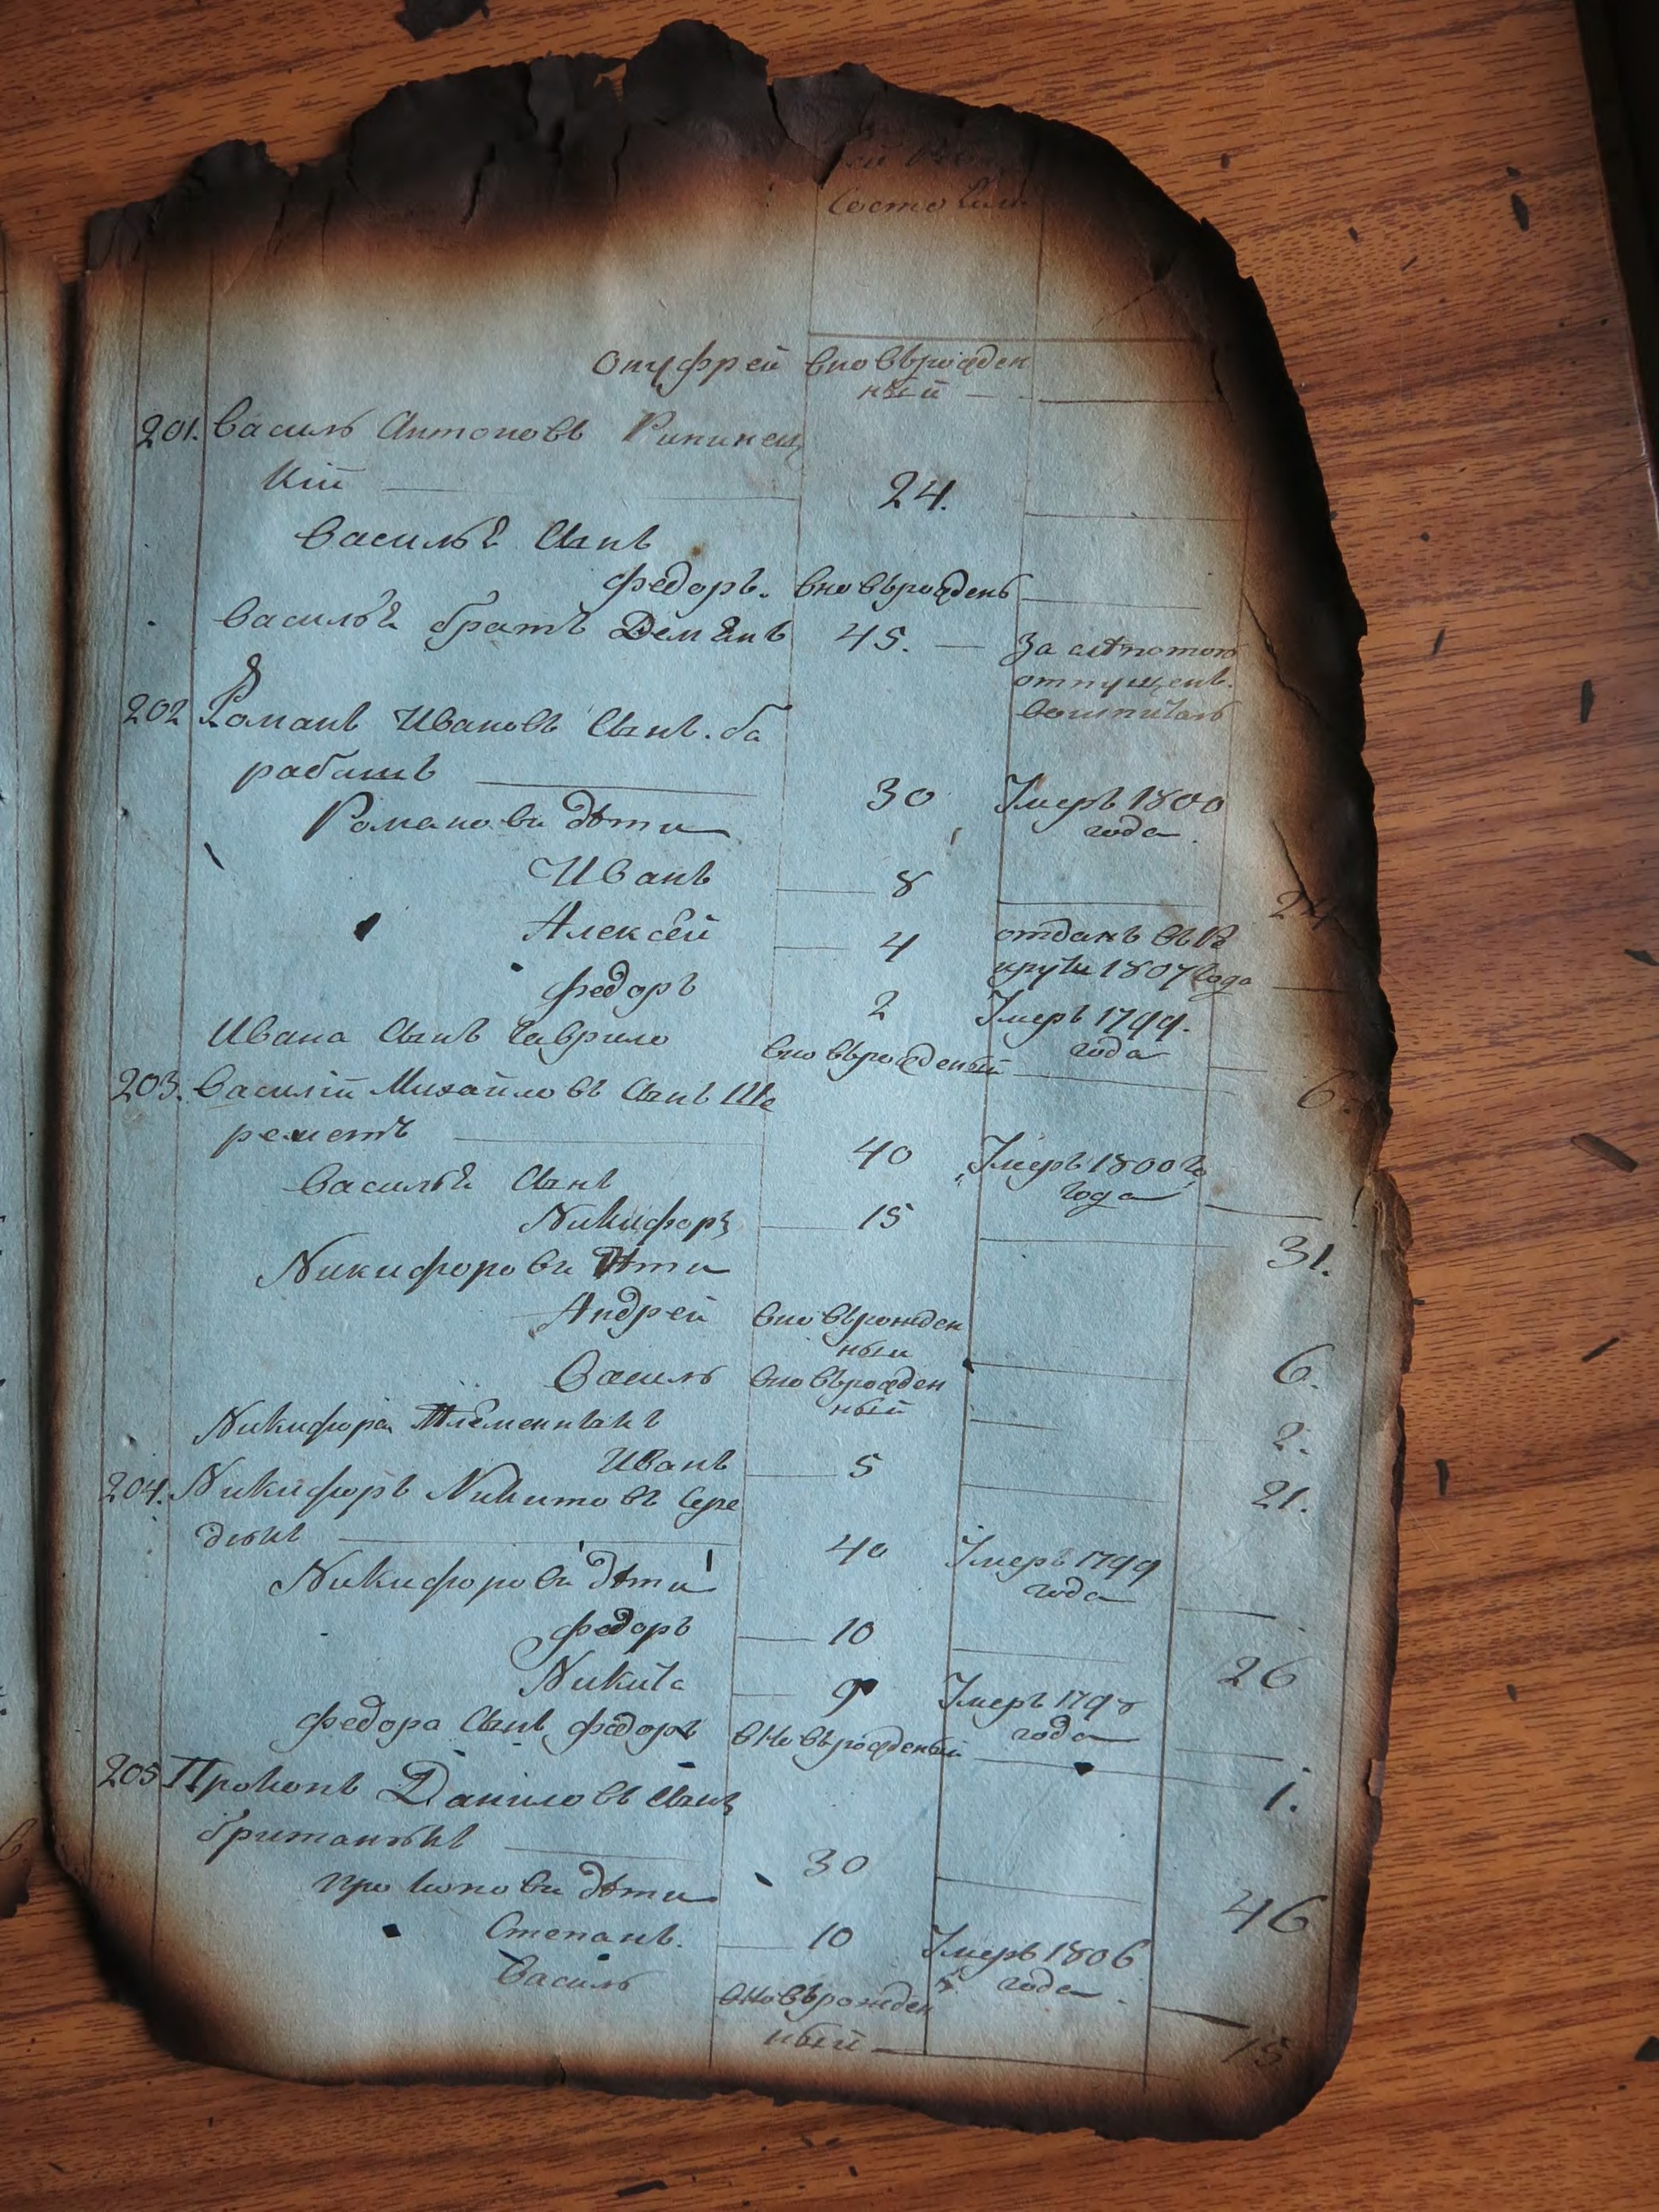 Состояли
Онуфрей вновьрожден
ный
201. Василь Антоновъ
кий 24.
Василья сынъ
Федоръ. вновьрожденъ
Василья братъ Демянъ 45. За слѣпотою
отпущенъ.
202 Романъ Ивановъ сынъ. ба
рабашъ 30 Умеръ 1800
года
Романови дѣти
Иванъ 8 24
Алексѣй 4 отданъ въ ре
круты 1807 года
Федоръ 2 Умеръ 1799.
года
Ивана сынъ Гаврило вновьрожденый 6.
203. Василій Михайловъ сынъ Ше
реметъ 40 Умеръ 1800 го
года
Василья сынъ
Никифоръ 15 31.
Никифорови дѣти
Андрей вновьрожден
ный 6.
Василь вновьрожден
ный 2.
Никифора племенникъ
Иванъ 5 21.
204. Никифоръ Никитовъ Сере
дюкъ 40 Умеръ 1799
года
Никифорови дѣти
Федоръ 10 26
Никита 9 Умеръ 1798
года
Федора сынъ Федоръ вновьрожденый 1.
205 Прокопъ Даниловъ сынъ
британюкъ 30 46
Прокопови дѣти
Степанъ. 10 Умеръ 1806
года
Василь вновьрожден
ный 15